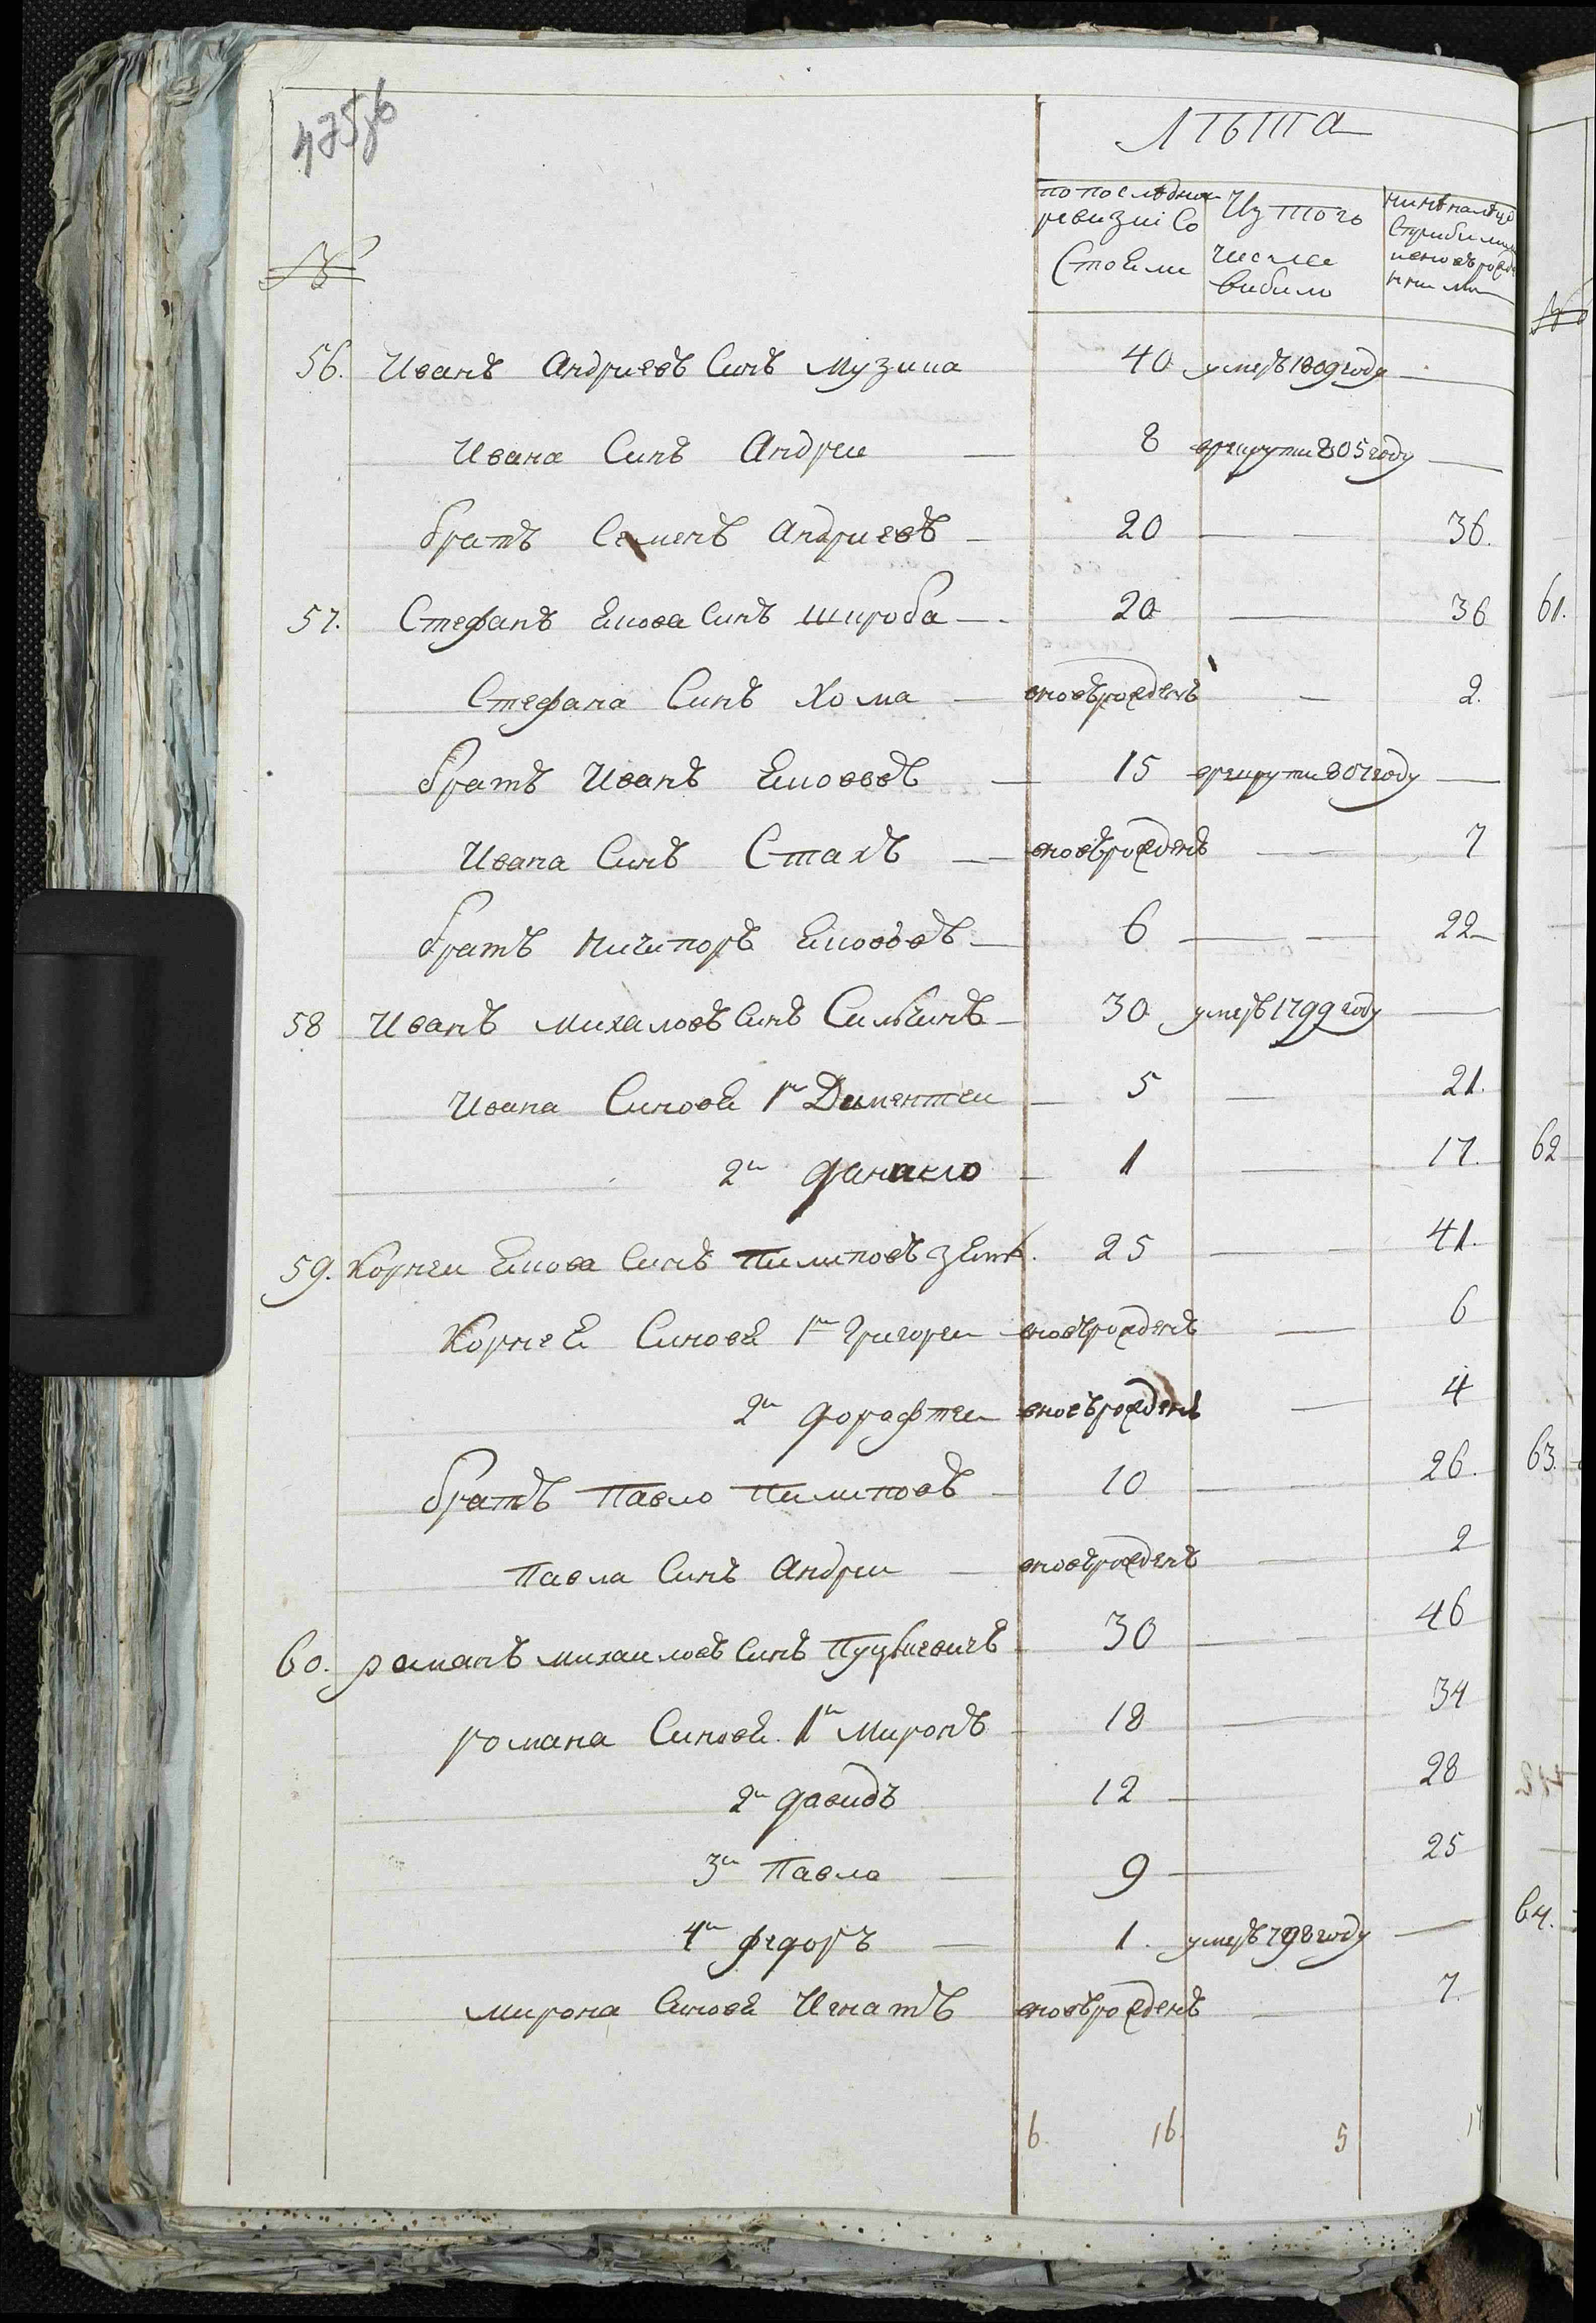 475об
№
Лѣта
по последнеи ревизiи Состоѧли
Из того числа вибило
нинѣ налѣцо
56. Иванъ Андриевъ Синъ Музика 40 умеръ 1809 году —
Ивана Синъ Андреи — 8 врекрути 805 году —
братъ Семенъ Андриевъ — 20 — — 36.
57. Стефанъ Екова Синъ Широба — 20 — 36
Стефана Синъ Хома — вновърожденъ — 2.
братъ Иванъ Ековъвъ — 15 врекрути 807 году —
Ивана Синъ Стахъ — вновърожденъ — 7
братъ Ничипоръ Ековъвъ — 6 — — 22
58 Иванъ Михаловъ Синъ Сильчикъ — 30 умеръ 1799 году —
Ивана Синовѧ 1й Дементеи — 5 — 21.
2й Данило — 1 — 17.
59. Корнеи Екова Синъ Пилиповъ зѧть. 25 — 41.
Корнеѧ Синовѧ 1й Григореи вновърожденъ — 6
2й Дорофтеи вновърожденъ — 4
братъ Павло Пилиповъ — 10 — 26.
Павла Синъ Андреи — вновърожденъ — 2
60. Романъ Михаиловъ Синъ Пуцкевичъ 30 — 46
Романа Синовѧ. 1й Миронъ 18 — 34
2й Давидъ 12 — 28
3й Павло — 9 — 25
4й Федоръ — 1. умеръ 798 году —
Мирона Синовѧ Игнатъ вновърожденъ — 7.
6. 16. 5
№
61.
62
63.
64.